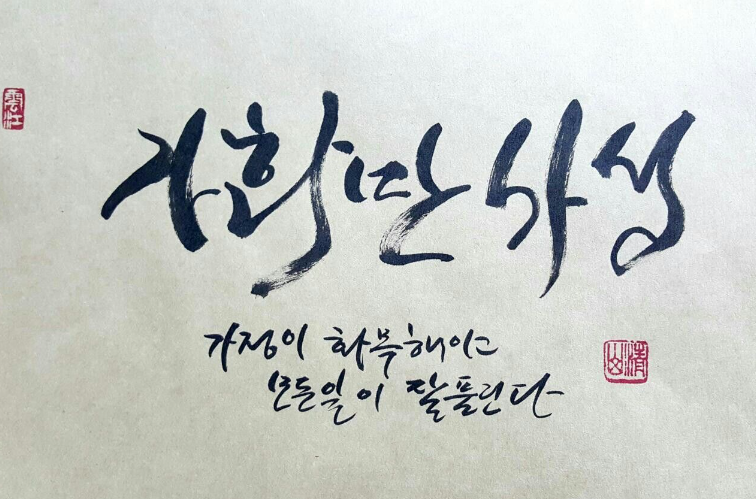 雲江
가화만사성
가정이 화목해야
모든일이 잘풀린다
清山